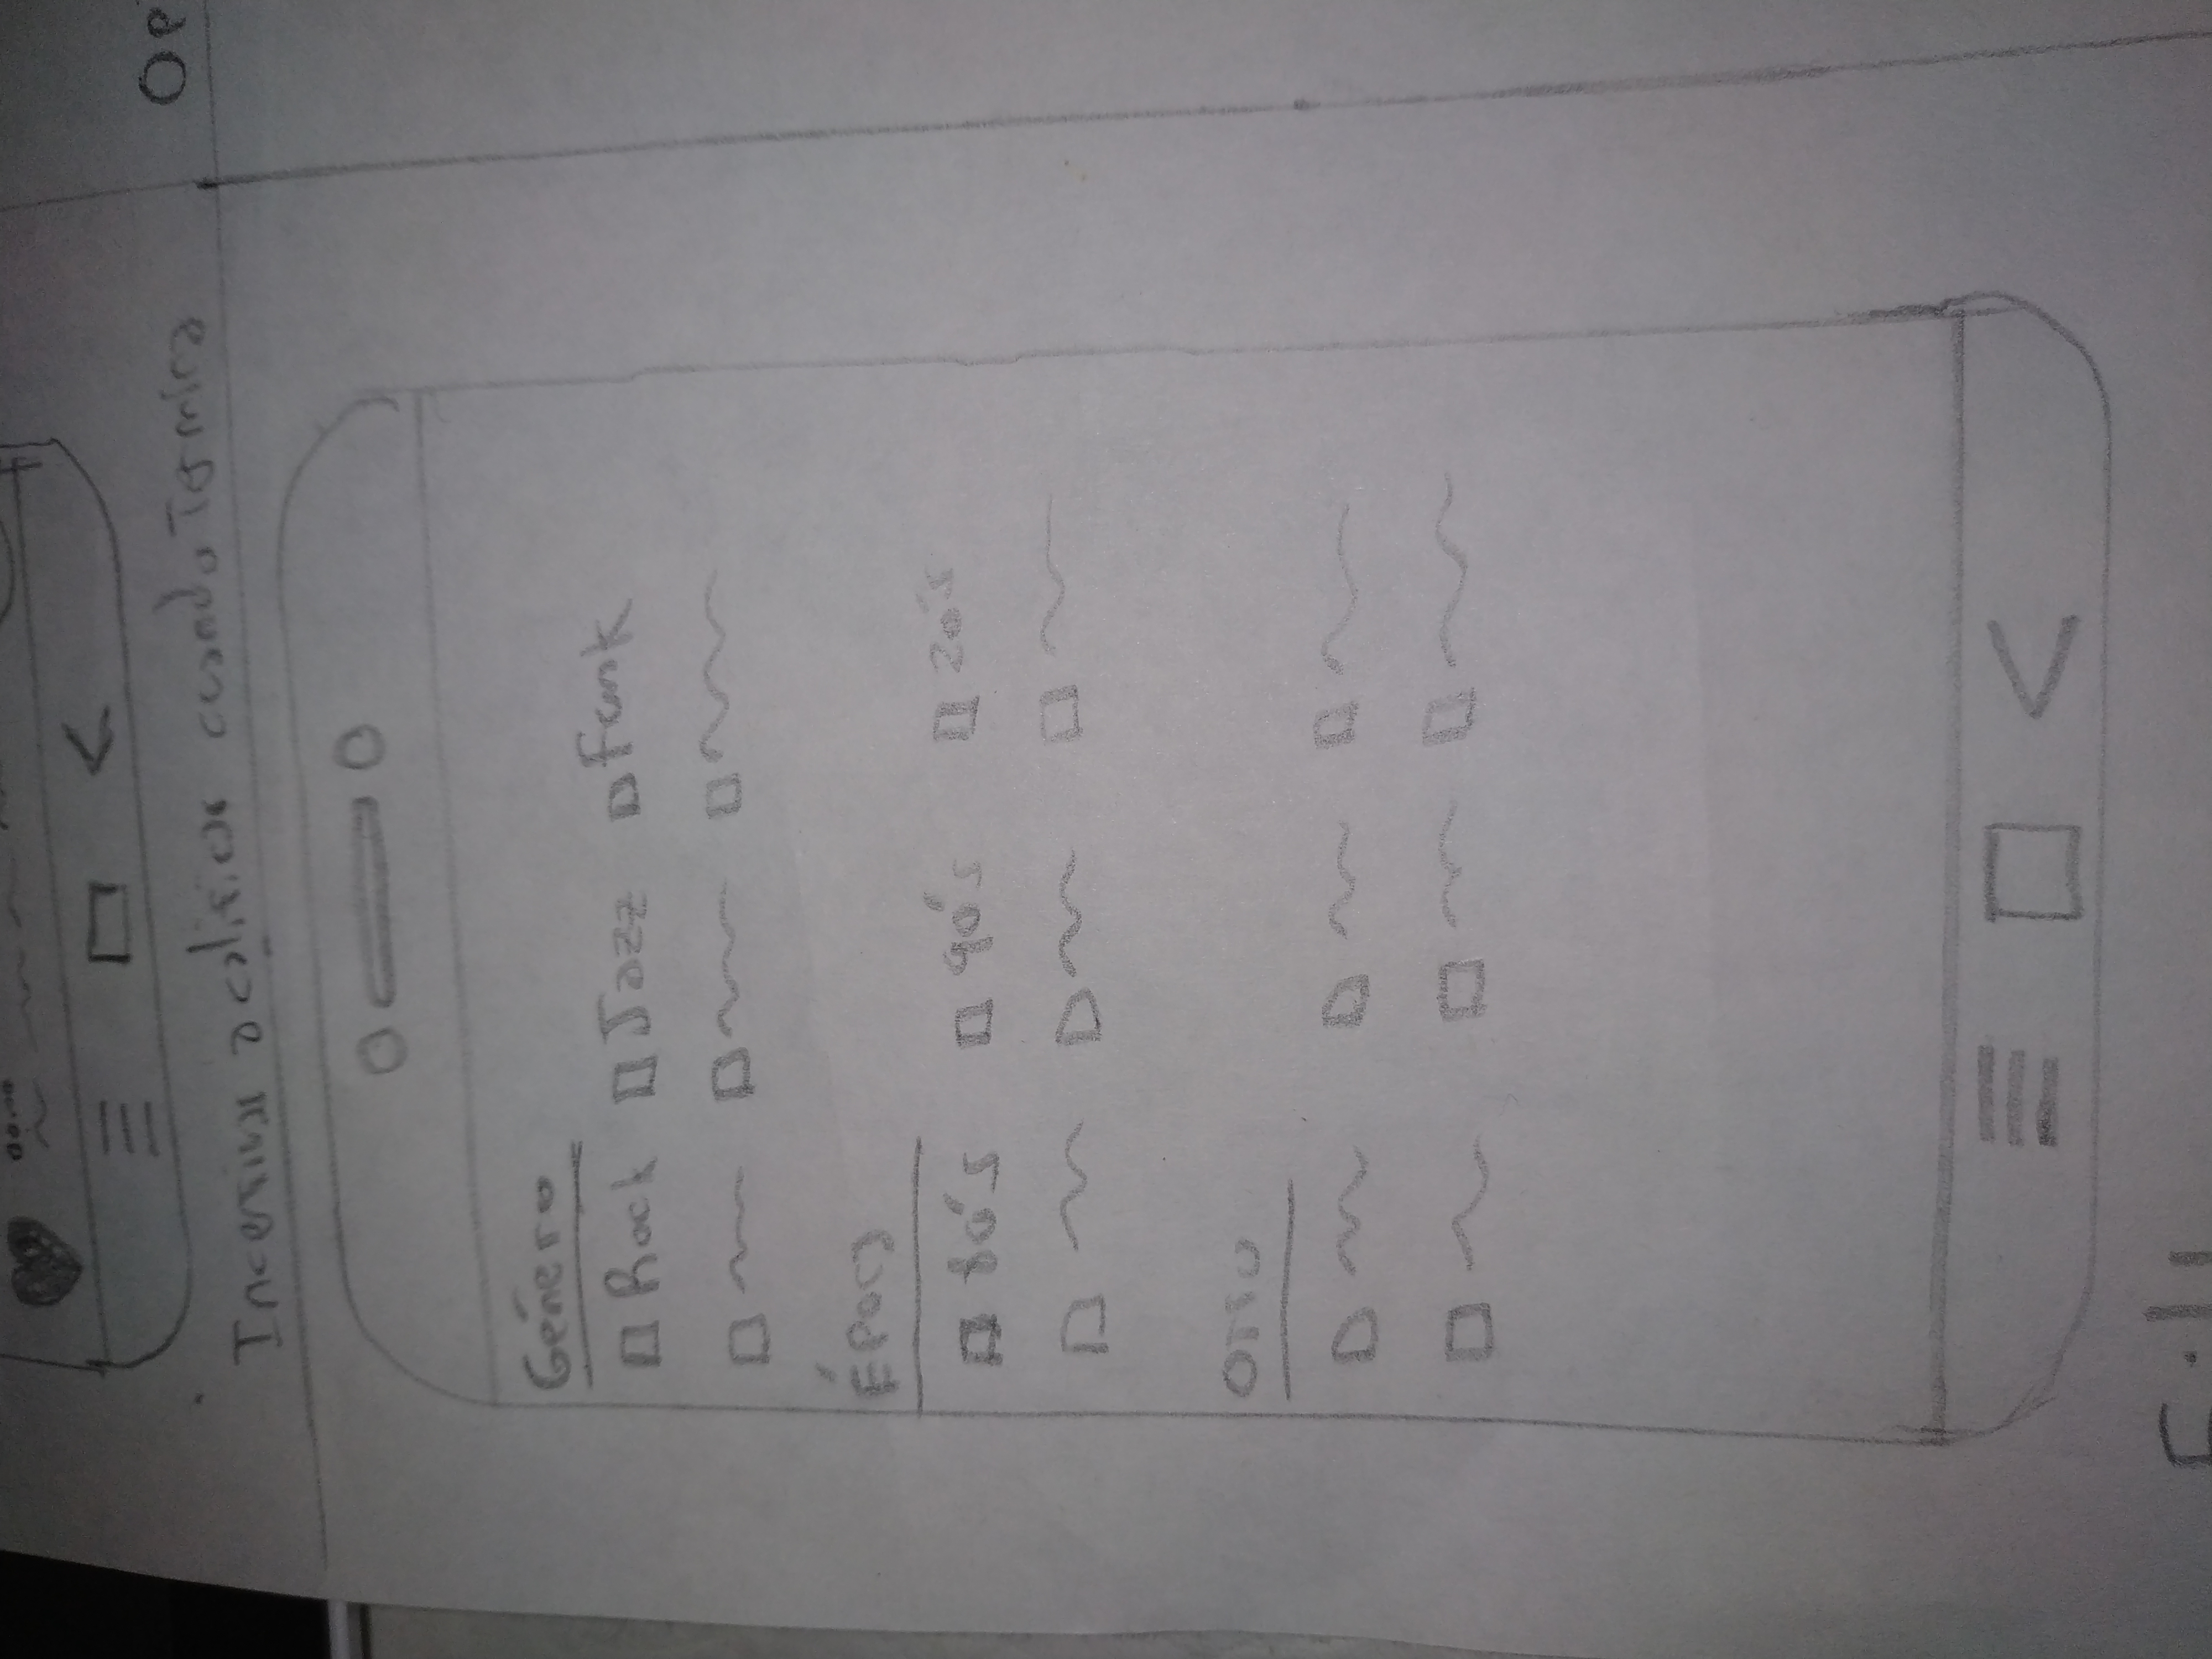 Incentivar a calificar cuando Termina
Op
Género
Rock Jazz Funk
Época
80's 90's 20's
Otro
Fil